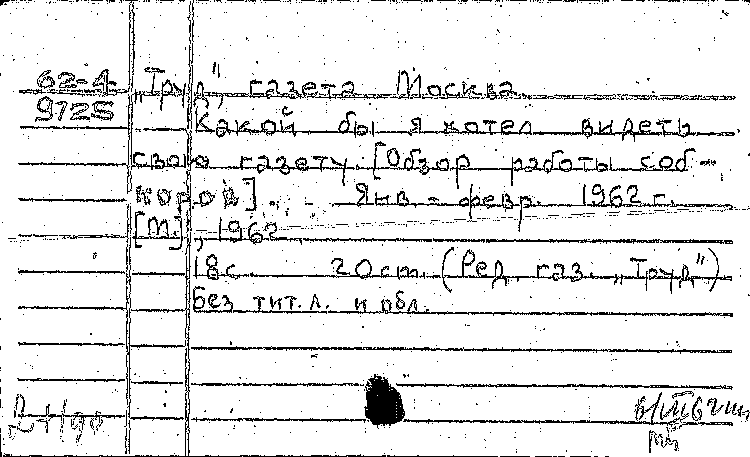 62-4
9725
„Труд", газета Москва.
Какой бы я хотел видеть
свою газету. [Обзор работы соб-
коров]. Янв. - февр. 1962 г.
[М.], 1962
18 с. 20 см. (Ред. газ. „Труд")
Без тит. л. и обл.